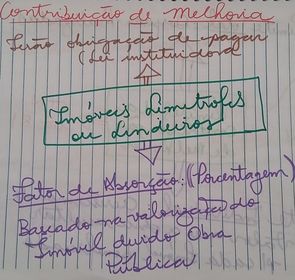 Contribuição de Melhoria
Terão obrigação de pagar
(Lei instituidora
Imóveis Limítrofes
ou Lindeiros
Fator de Absorção: (Porcentagem)
Baseado na valorização do
Imóvel devido Obra
Pública